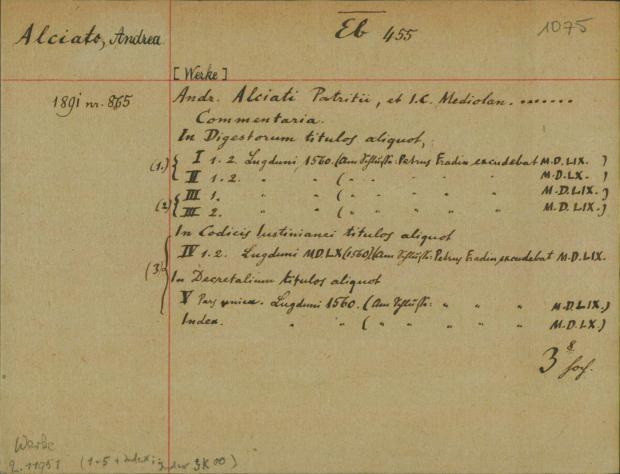 Alciato, Andrea
Eb 455
1075
[Werke]
1891 nr. 865
Andr. Alciati Patritii, et I.C. Mediolan. .......
Commentaria.
In Digestorum titulos aliquot,
(1.) { I 1.2. Lugduni, 1560. (Am Schluss: Petrus Fradin excudebat M.D.LIX.)
II 1-2. " " ( " " " " " M.D.LX.)
(2) { III 1. " " ( " " " " " M.D.LIX.)
III 2. " " ( " " " " " M.D.LIX.)
In Codicis Iustinianei titulos aliquot
(3) { IV 1.2. Lugduni MDLX (1560) (Am Schluss: Petrus Fradin excudebat M.D.LIX.
In Decretalium titulos aliquot
V Pars unica. Lugduni 1560. (Am Schluss: " " " M.D.LIX.)
Index. " " ( " " " " " M.D.LX.)
3 8
Werke
2.11951 (1-5 + Index;